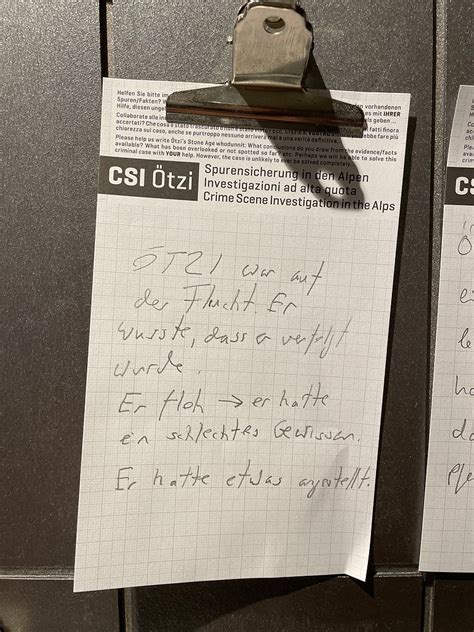 Helfen Sie bitte im
Spuren/Fakten?
Hilfe, diesen
vorhandenen
es mit IHRER
Collaborate alle
accertati? Che cosa è stato trascurato
ti fatti finora
chiarezza sul caso, anche se purtroppo nessuno arriverà mai a una verità definitiva.
Please help us write Ötzi's Stone Age whodunnit: What conclusions do you draw from the evidence/facts
available? What has been overlooked or not spotted so far? Perhaps we will be able to solve this
criminal case with YOUR help. However, the case is unlikely to ever be solved completely.
CSI Ötzi
Spurensicherung in den Alpen
Investigazioni ad alta quota
Crime Scene Investigation in the Alps
ÖTZI war auf
der Flucht. Er
wusste, dass er verfolgt
wurde.
Er floh → er hatte
ein schlechtes Gewissen.
Er hatte etwas angestellt.
CS